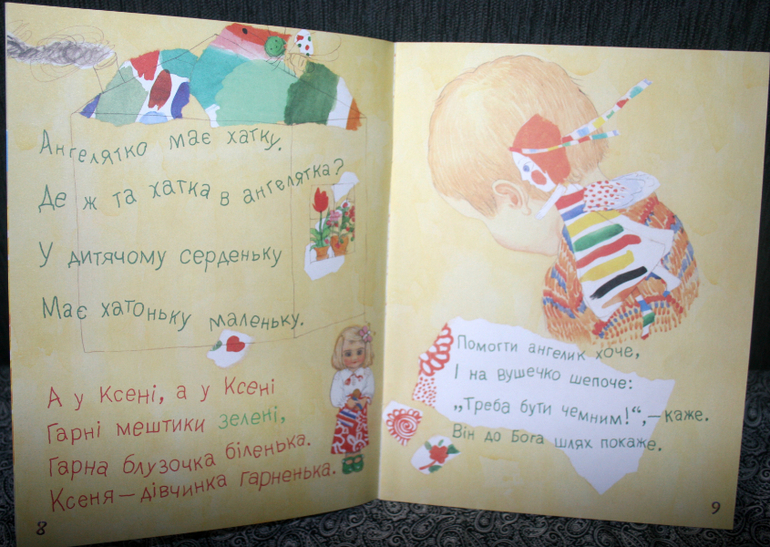 Ангелятко має хатку.
Де ж та хатка в ангелятка?
У дитячому серденьку
Має хатоньку маленьку.
А у Ксені, а у Ксені
Гарні мештики зелені,
Гарна блузочка біленька.
Ксеня — дівчинка гарненька.
8
Помогти ангелик хоче,
І на вушечко шепоче:
„Треба бути чемним!“, — каже.
Він до Бога шлях покаже.
9